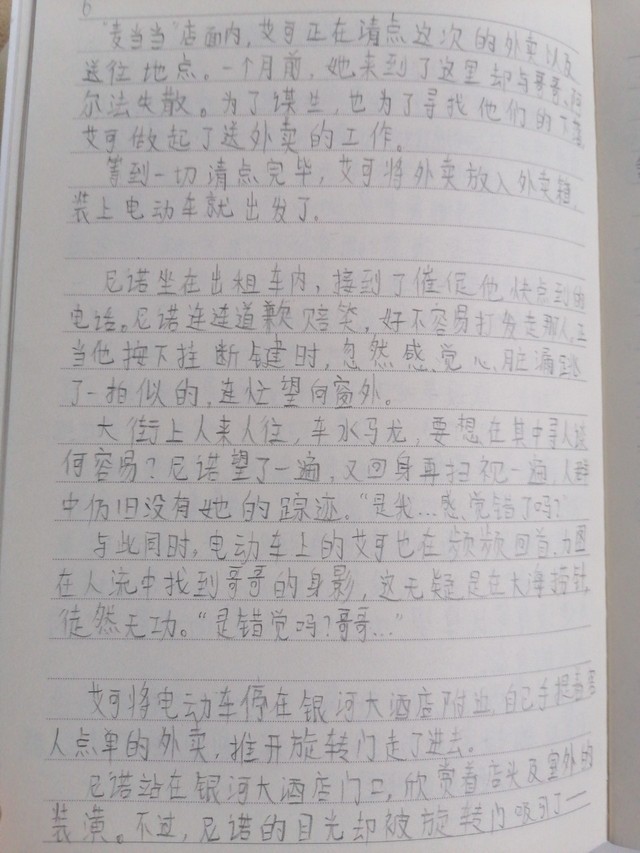 6
“麦当当”店面内，艾可正在清点这次的外卖以及
送往地点。一个月前，她来到了这里却与哥哥、阿
尔法失散。为了谋生，也为了寻找他们的下落，
艾可做起了送外卖的工作。
等到一切清点完毕，艾可将外卖放入外卖箱，
装上电动车就出发了。
尼诺坐在出租车内，接到了催促他快点到的
电话。尼诺连连道歉赔笑，好不容易打发走那人。正
当他按下挂断键时，忽然感觉心脏漏跳
了一拍似的，连忙望向窗外。
大街上人来人往，车水马龙，要想在其中寻人谈
何容易？尼诺望了一遍，又回身再扫视一遍，人群
中仍旧没有她的踪迹。“是我…感觉错了吗？”
与此同时，电动车上的艾可也在频频回首，力图
在人流中找到哥哥的身影，这无疑是在大海捞针，
徒然无功。“是错觉吗？哥哥…”
艾可将电动车停在银河大酒店附近，自己手提着客
人点单的外卖，推开旋转门走了进去。
尼诺站在银河大酒店门口，欣赏着店头及室外的
装潢。不过，尼诺的目光却被旋转门吸引了——